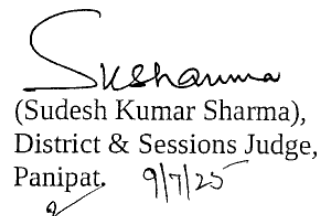 SKSharma
(Sudesh Kumar Sharma),
District & Sessions Judge,
Panipat. 9/7/25